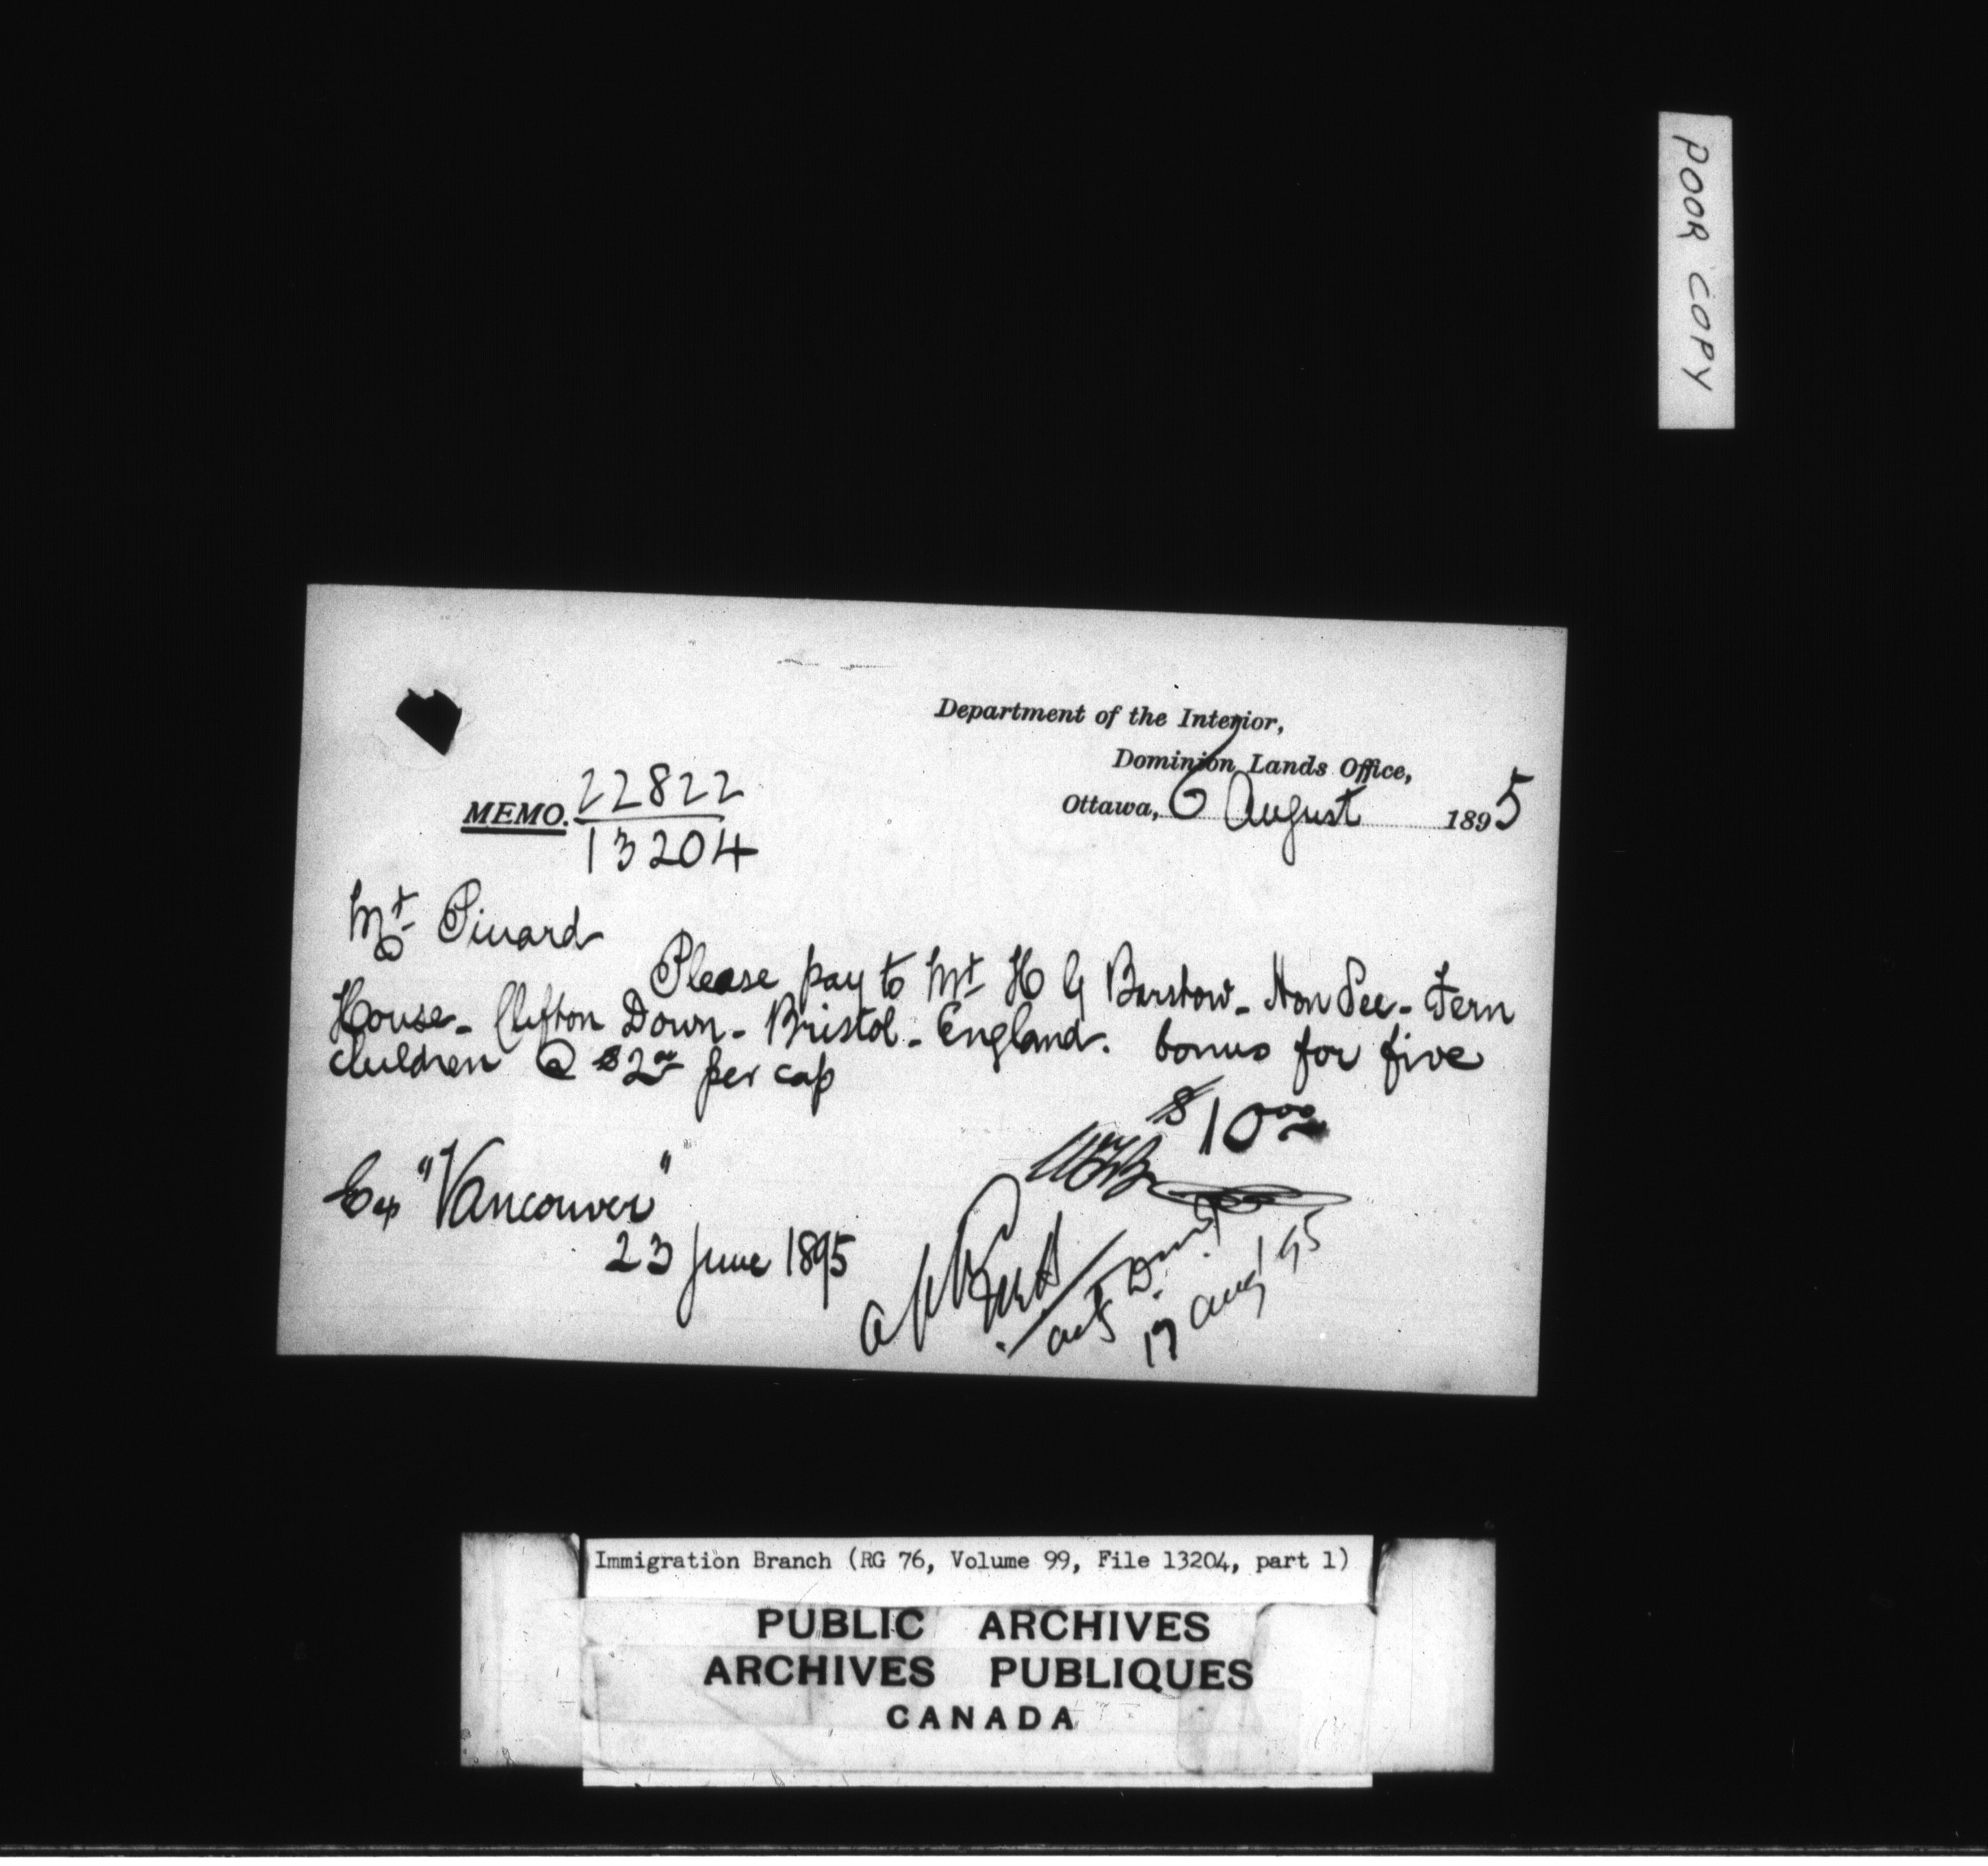 POOR COPY
Department of the Interior,
Dominion Lands Office,
Ottawa, 6 August 1895
MEMO. 22822
13204
Mr Pinard
Please pay to Mr H G Barstow - Hon Sec - Fern
House - Clifton Down - Bristol - England. bonus for five
children @ $2.00 per cap
$10.00
Ex "Vancouver"
23 June 1895
17 Aug/95
Immigration Branch (RG 76, Volume 99, File 13204, part 1)
PUBLIC ARCHIVES
ARCHIVES PUBLIQUES
CANADA